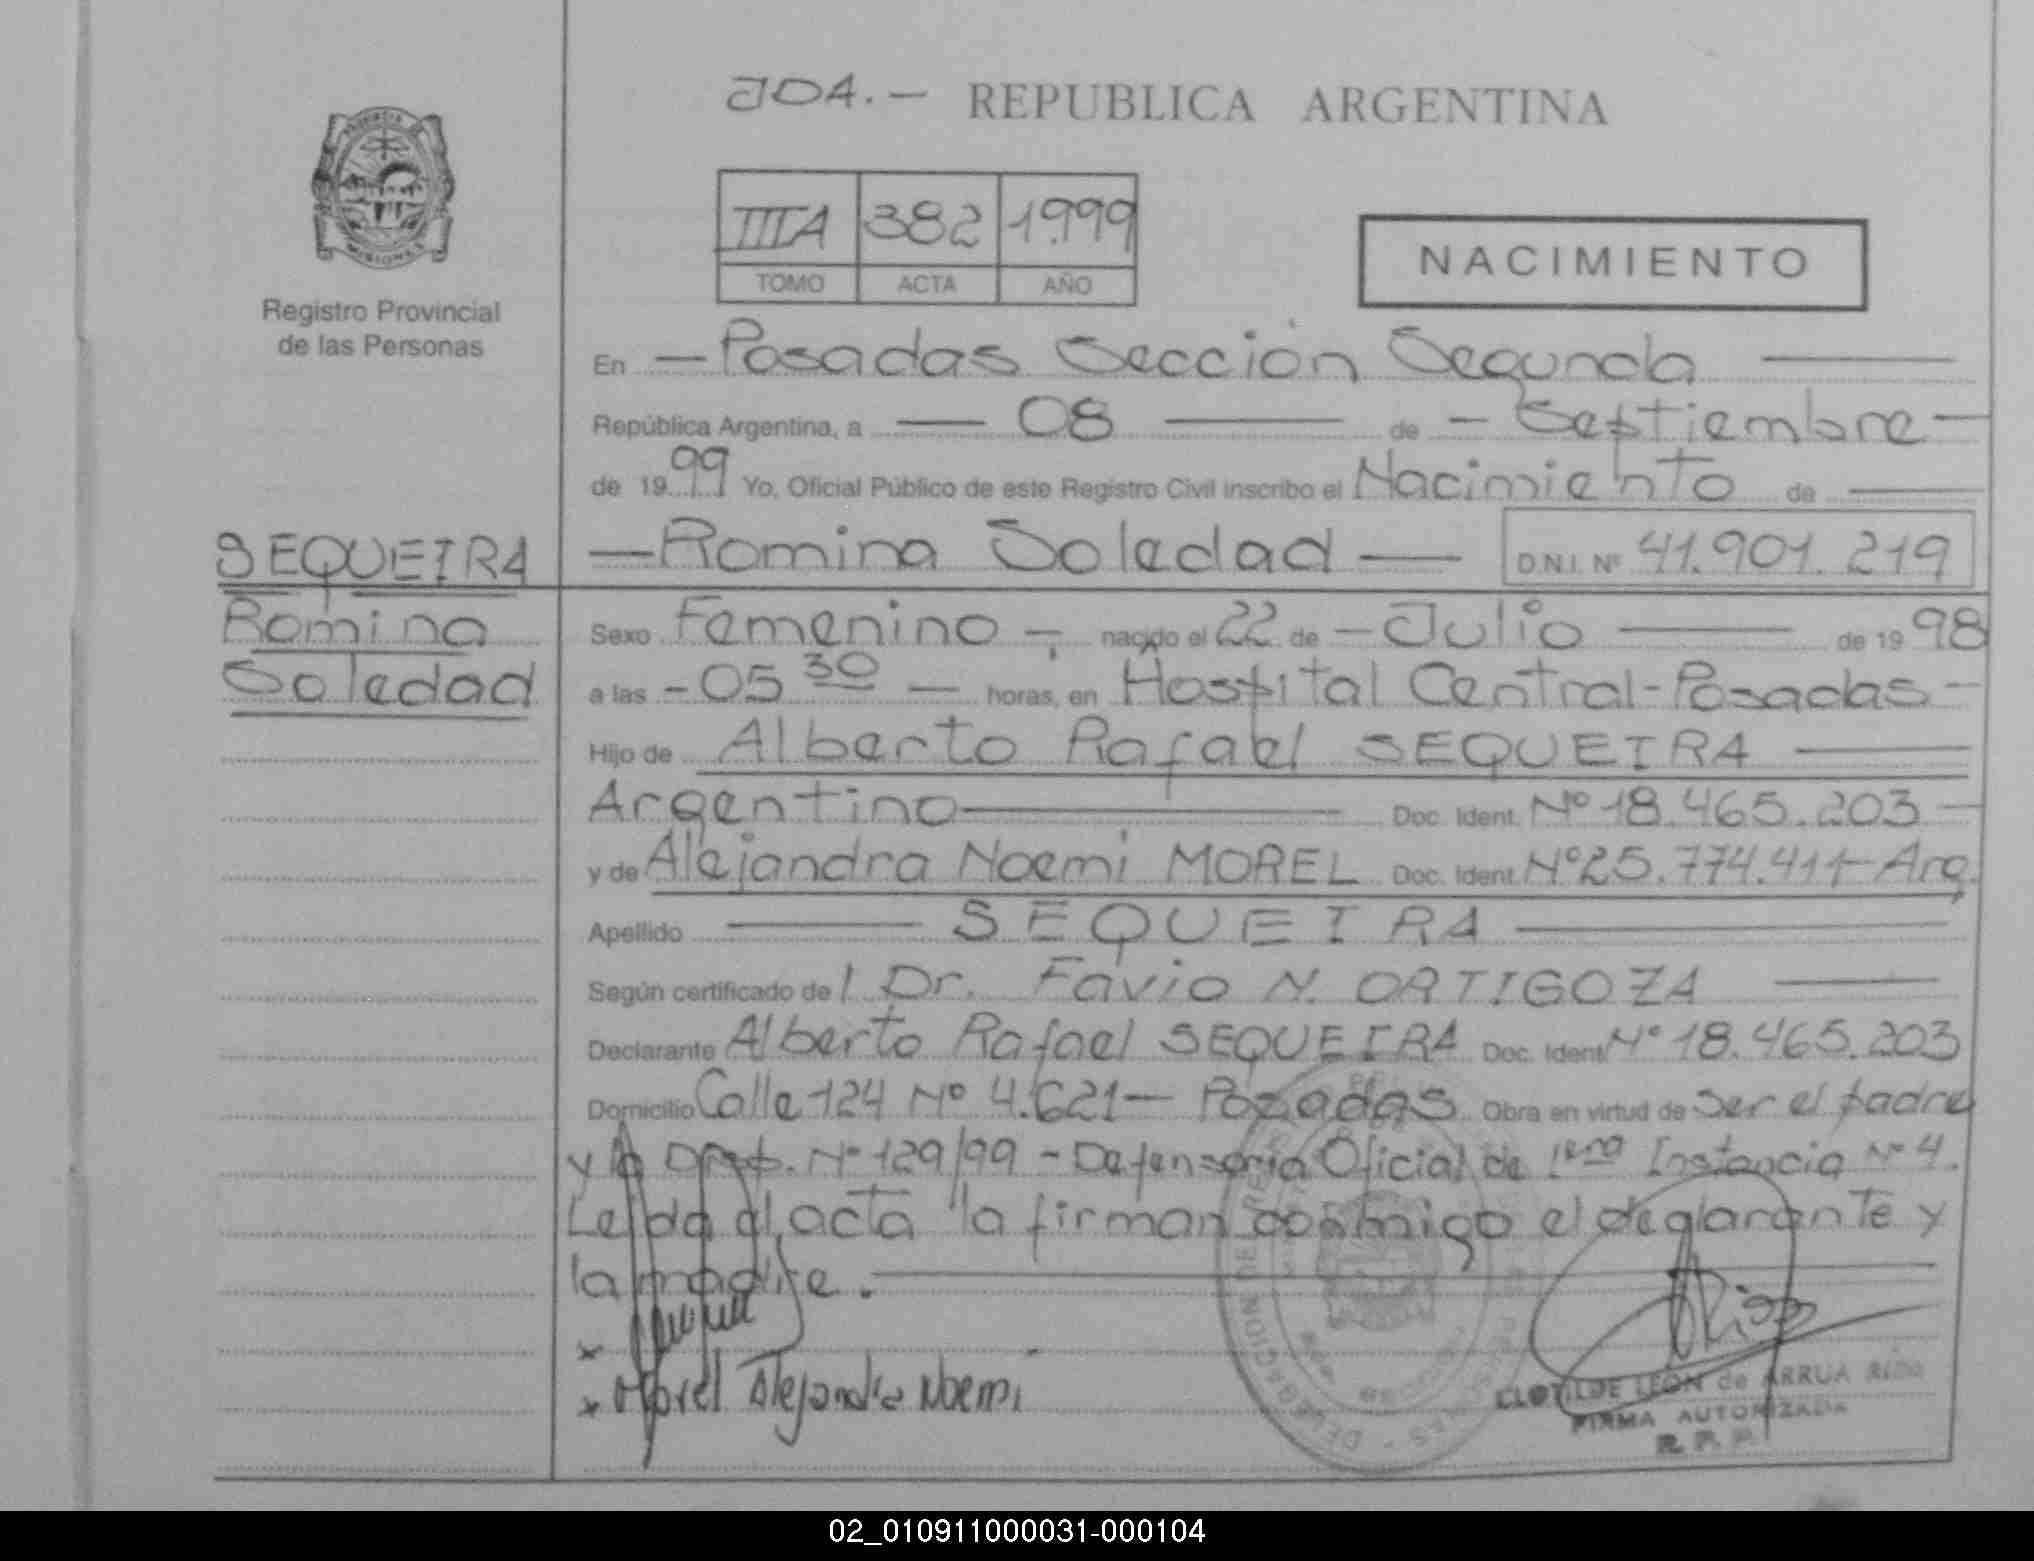 104.- REPUBLICA ARGENTINA
PROVINCIA DE
MISIONES
Registro Provincial
de las Personas
IIIA 382 1.999
TOMO ACTA AÑO
NACIMIENTO
En — Posadas Sección Segunda —
República Argentina, a — 08 — de — Septiembre —
de 1999 Yo, Oficial Público de este Registro Civil inscribo el Nacimiento de —
— Romina Soledad — D.N.I. Nº 41.901.219
SEQUEIRA
Romina
Soledad
Sexo Femenino -, nacido el 22 de — Julio — de 1998
a las - 05 30 — horas, en Hospital Central - Posadas -
Hijo de Alberto Rafael SEQUEIRA —
Argentino — Doc. Ident. Nº 18.465.203 —
y de Alejandra Noemi MOREL Doc. Ident. Nº 25.774.411 - Arg.
Apellido — SEQUEIRA —
Según certificado del Dr. Favio N. ORTIGOZA —
Declarante Alberto Rafael SEQUEIRA Doc. Ident Nº 18.465.203
Domicilio Calle 124 Nº 4.621 — Posadas Obra en virtud de ser el padre
y la Nº 129/99 - Defensoria Oficial de 1era Instancia Nº 4.
Leida el acta la firman conmigo el declarante y
la madre. —
x
x Morel Alejandra Noemi
CLOTILDE LEON de ARRUA RIOS
FIRMA AUTORIZADA
R. P. P.
02_010911000031-000104